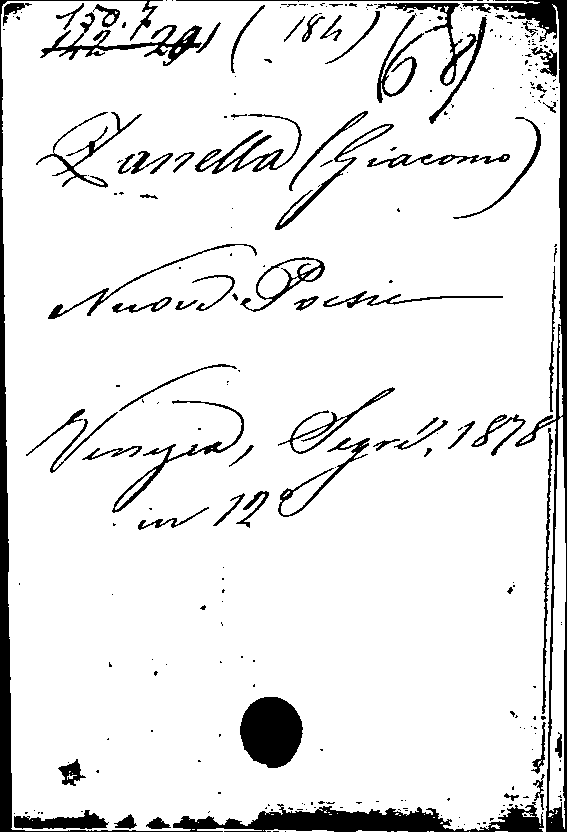 150.7.
(184)
(68)
Zanella (Giacomo)
Nuove Poesie
Venezia, Segré, 1878
in 12º